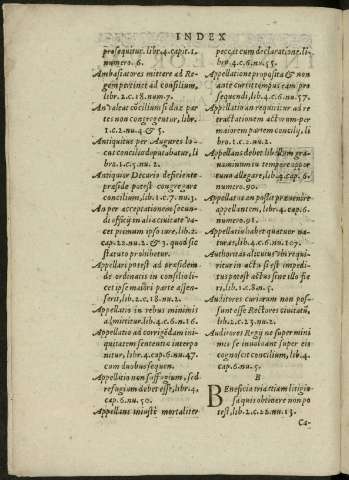 INDEX
prosequitur. libr. 4. capit. 1.
numero. 6.
Ambasiatores mittere ad Re-
gem pertinet ad consilium,
libr. 2. c. 18. num. 7.
An valeat cõcilium si duæ par
tes non congregentur, libr.
1. c. 2. nu. 4 & 5.
Antiquitus per Augures lo-
cus concilio deputabatur, li-
bro. 1. c. 5. nu. 2.
Antiquior Decurio deficiente
præside potest congregare
concilium, lib. 1. c. 7. nu. 3.
An per acceptationem secun-
di officij in alia ciuitate va-
cet primum ipso iure, lib. 2.
cap. 22. nu. 2. & 3. quod sic
statuto prohibetur.
Appellari potest ad præsidem
de ordinatis in consilio li-
cet ipse maiori parte assen-
serit, lib. 2. c. 18. nu. 2.
Appellatio in rebus minimis
admittitur. lib. 4. c. 6. nu. 16.
Appellatio ad corrigẽdam ini-
quitatem sententiæ interpo
nitur, libr. 4. cap. 6. nu. 47.
cum duobus sequen.
Appellatio non suffragium, sed
refugium debet esse, libr. 4.
cap. 6. nu. 50.
Appellans iniustè mortaliter
peccat cum declaratione, li-
bro. 4. c. 6. nu. 55.
Appellatione proposita & non
ante currit tempus eam pro
sequendi, lib. 4. c. 6. nu. 57.
Appellatio an requiritur ad re
tractationem actorum per
maiorem partem concilij, li
bro. 1. c. 2. nu. 2.
Appellans debet libellum gra-
uaminum in tempore oppor
tuno allegare, lib. 4. cap. 6.
numero. 90.
Appellatus an possit præuenire
appellantem, libr. 4. cap. 6.
numero. 91.
Appellatio habet quatuor na-
turas, lib. 4. c. 6. nu. 107.
Authoritas alicuius vbi requi
ritur in actu si est impedi-
tus potest actus sine illo fie
ri, lib. 1. c. 8. n. 5.
Auditores curiarum non pos-
sunt esse Rectores ciuitatũ,
lib. 2. c. 23. nu. 2.
Auditores Regij ne super mini
mis se inuoluant super eis
cognoscit concilium, lib. 4.
cap. 6. nu. 5.
B
Beneficia triæ etiam litigio-
sa quis obtinere non po
test, lib. 2. c. 22. nu. 13.
Ca-